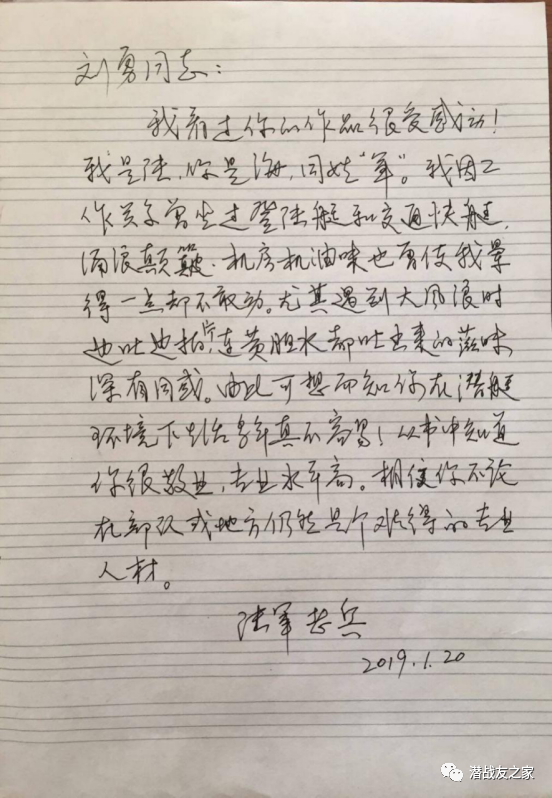 刘勇同志：
我看过你的作品很受感动！
我是陆，你是海，同姓“军”。我因工
作关系曾坐过登陆艇和交通快艇，
涌浪颠簸，机房机油味也曾使我晕
得一点都不敢动。尤其遇到大风浪时
边吐边拍，连黄胆水都吐出来的滋味
深有同感。由此可想而知你在潜艇
环境下生活多年真不容易！从书中知道
你很敬业，专业水平高。相信你不论
在部队或地方仍然是个难得的专业
人材。
陆军老兵
2019.1.20
潜战友之家